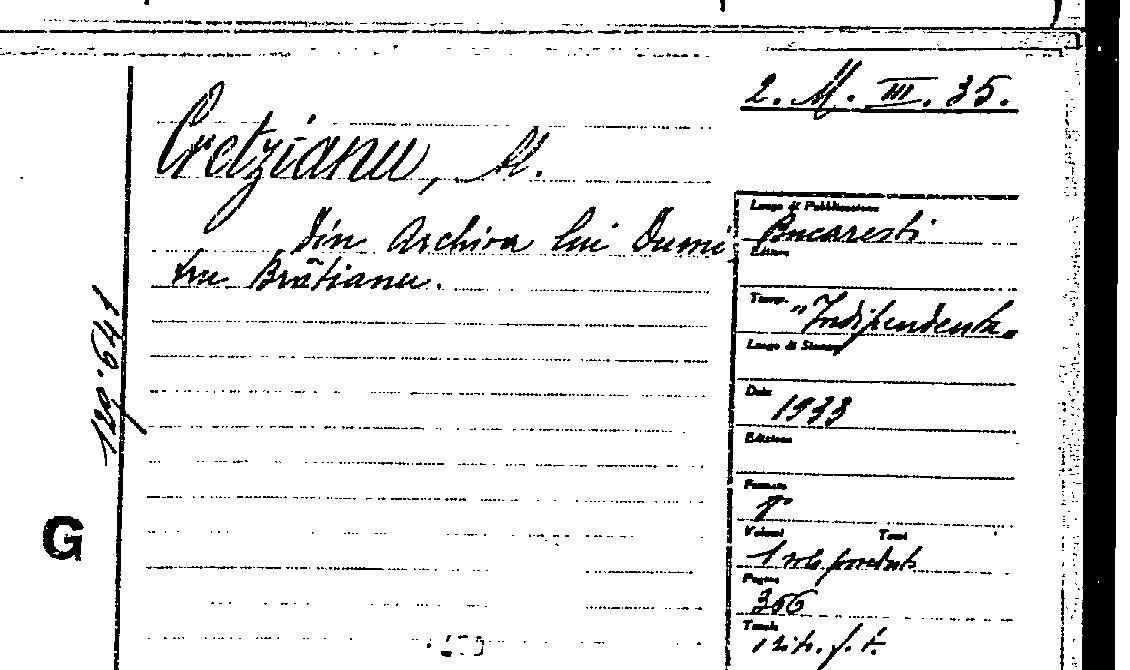 2. M. III. 35.
Cretzianu, A.
Din Archiva lui Dumi
tru Brătianu.
129.641
G
Luogo di Pubblicazione
Bucaresti
Editore
Tipogr. "Indipendenta"
Luogo di Stampa
Data
1933
Edizione
Formato
8°
Volumi Tomi
1 vol.
Pagine
366
Tavole
ritr. f. t.